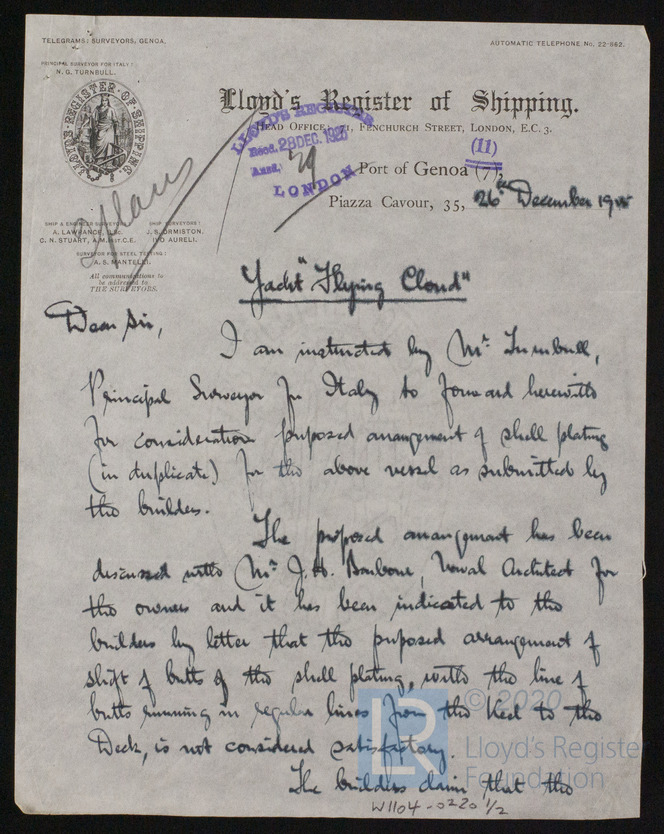 TELEGRAMS: SURVEYORS, GENOA.
AUTOMATIC TELEPHONE No. 22-862.
PRINCIPAL SURVEYOR FOR ITALY:
N. G. TURNBULL.
LLOYD'S REGISTER OF SHIPPING.
Lloyd's Register of Shipping.
HEAD OFFICE: 71, FENCHURCH STREET, LONDON, E.C. 3.
LLOYD'S REGISTER
Recd. 28 DEC. 192
Ansd. 29
LONDON
(11)
Port of Genoa (7),
Piazza Cavour, 35, 26th December 19
Plans
SHIP & ENGINEER SURVEYORS:
A. LAWRANCE,
C. N. STUART, A.M.INST.C.E.
SHIP SURVEYORS:
J. S. ORMISTON.
INO AURELI.
SURVEYOR FOR STEEL TESTING:
A. S. MANTELLI.
All communications to
be addressed to
THE SURVEYORS.
Yacht "Flying Cloud"
Dear Sir,
I am instructed by Mr. Turnbull,
Principal Surveyor for Italy to forward herewith
for consideration proposed arrangement of shell plating
(in duplicate) for the above vessel as submitted by
the builders.
The proposed arrangement has been
discussed with Mr. J. H. Naval Architect for
the owners and it has been indicated to the
builders by letter that the proposed arrangement of
shift of butts of the shell plating, with the line of
butts running in regular lines from the Keel to the
Deck, is not considered satisfactory.
The builders claim that the
W1104-0220 1/2
LR
© 2020
Lloyd's Register
Foundation